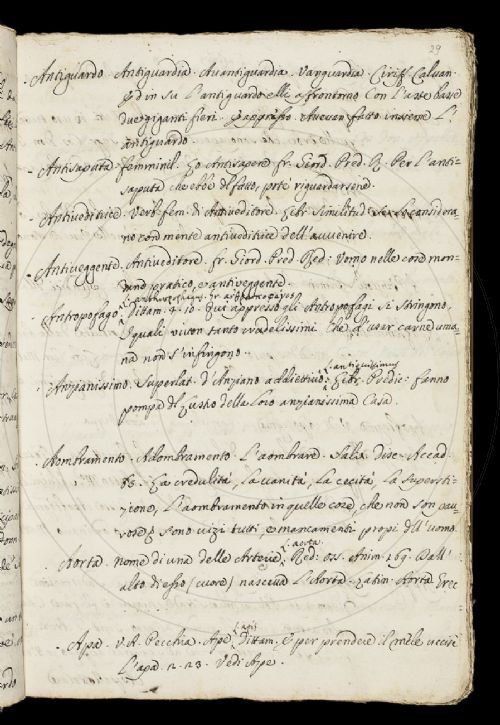 29
Antiguardo. Antiguardia. Avantiguardia. Vanguardia. Ciriff. Calvan.
Ed in su l'antiguardo elle affrontorno Con l'
due giganti fieri. Eappresso. Avevan fatto insieme l'
antiguardo.
Antisaputa femminil. Lo Antisapere fr. Giord. Pred. R. Per l'anti-
saputa ch'ebbe del fatto, potè riguardarsene.
Antiveditrice. Verb. fem. di Antiveditore. Libr. Similitud.
no con mente antiveditrice dell'avvenire.
Antiveggente. Antiveditore. fr. Giord. Pred. Red: Uomo nelle cose mon-
dane pratico, e antiveggente.
Antropofago. Dittam. 4. 10. Qui appresso gli Antropofagi si stringono,
I quali vivon tanto crudelissimi Che a usar carne uma-
na non s'infingono.
L. antiquissimus
Anzianissimo. Superlat. d'Anziano addiettivo. Libr. Predic: Fanno
pompa del lustro della loro anzianissima Casa.
Aombramento. Adombramento. L'aombrare. Salv. Disc. Accad.
83. La credulità, la vanità, la cecità, la supersti-
zione, l'aombramento in quelle cose, che non son pau-
rose, sono vizi tutti, e mancamenti propri dell'uomo.
L. aorta
Aorta. nome di una delle Arterie. Red: oss. Anim. 169. Dall'
alto di esso (cuore) nasceva l'Aorta. Latin. Aorta Grec
L. apis
Apa. V. A. Pecchia. Ape. Dittam. E per prendere il mele uccisi
l'apa 2. 23. Vedi Ape.